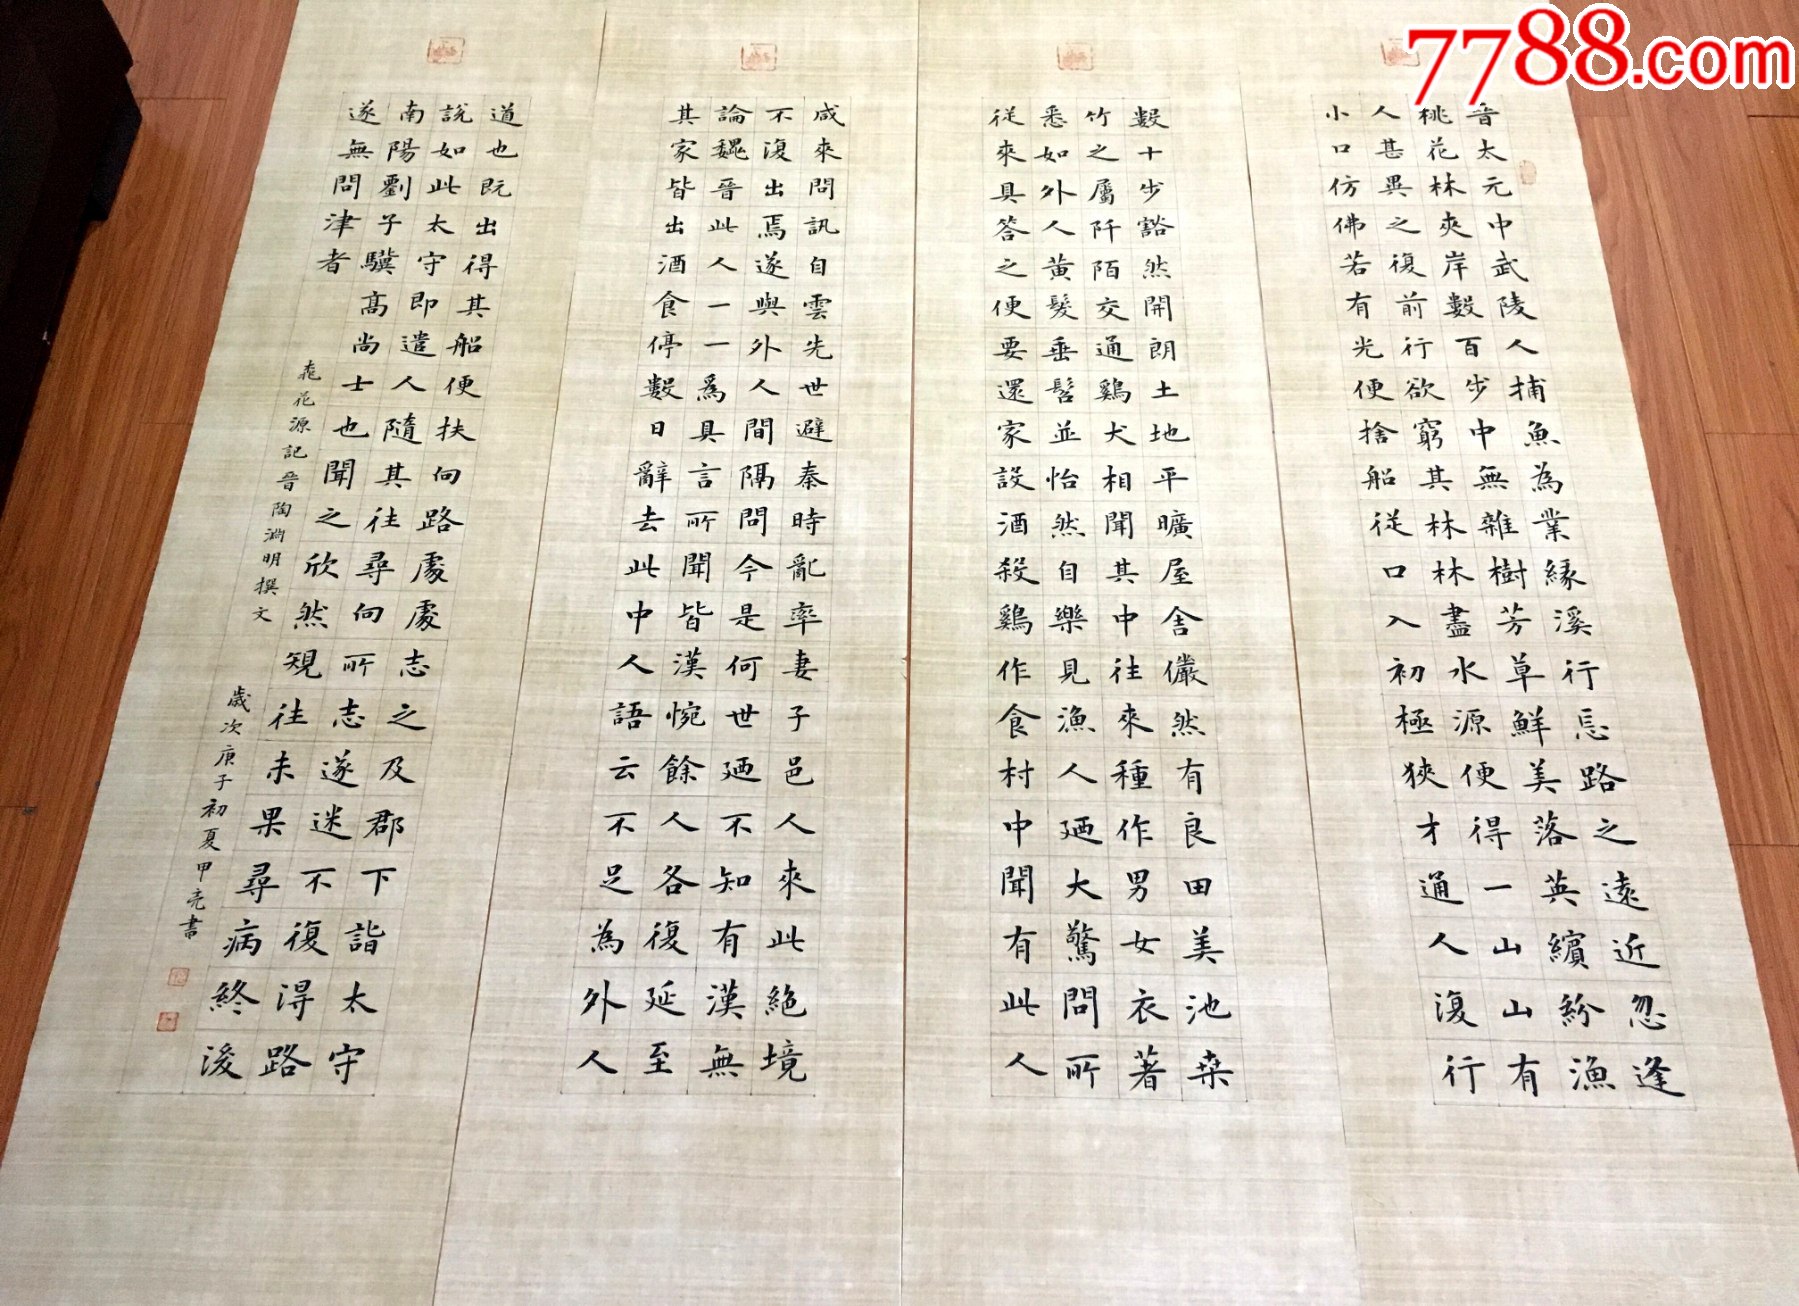 晉太元中武陵人捕魚為業緣溪行忘路之遠近忽逢
桃花林夾岸數百步中無雜樹芳草鮮美落英繽紛漁
人甚異之復前行欲窮其林林盡水源便得一山山有
小口仿佛若有光便捨船從口入初極狹才通人復行
數十步豁然開朗土地平曠屋舍儼然有良田美池桑
竹之屬阡陌交通鷄犬相聞其中往來種作男女衣著
悉如外人黃髮垂髫並怡然自樂見漁人廼大驚問所
從來具答之便要還家設酒殺鷄作食村中聞有此人
咸來問訊自雲先世避秦時亂率妻子邑人來此絕境
不復出焉遂與外人間隔問今是何世廼不知有漢無
論魏晉此人一一爲具言所聞皆漢惋餘人各復延至
其家皆出酒食停數日辭去此中人語云不足為外人
道也既出得其船便扶向路處處志之及郡下詣太守
說如此太守即遣人隨其往尋向所志遂迷不復得路
南陽劉子驥高尚士也聞之欣然規往未果尋病終後
遂無問津者
桃花源記晉陶淵明撰文
歲次庚子初夏甲亮書
7788.com